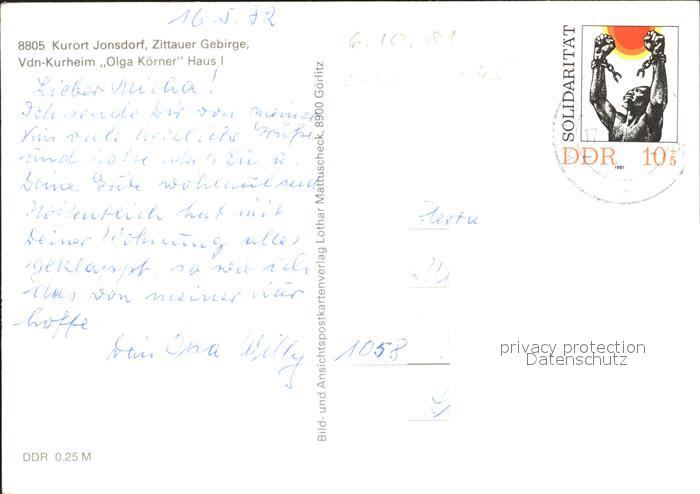 16.5.82
8805 Kurort Jonsdorf, Zittauer Gebirge,
Vdn-Kurheim „Olga Körner" Haus I
Lieber Micha!
Ich sende Dir von meiner
Kur viele herzliche Grüße
und hoffe daß Du u.
Deine Gute wohlauf seid
Hoffentlich hat mit
Deiner Wohnung alles
geklappt, so wie ich
das von meiner Kur
hoffe.
Dein Opa Willy
DDR 0,25 M
Bild- und Ansichtspostkartenverlag Lothar Mattuscheck, 8900 Görlitz
6.10.81
SOLIDARITÄT
DDR 10+5
1981
17
Herrn
1058
privacy protection
Datenschutz